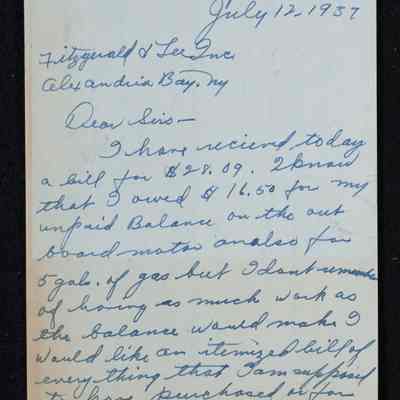 July 12, 1937
Fitzgerald & Lee Inc
Alexandria Bay. Ny
Dear Sirs—
I have recieved today
a bill for $28.09. I know
that I owed $16.50 for my
unpaid Balance on the out
board motor an also for
5 gals. of gas but I dont remember
of having as much work as
the balance would make I
would like an itemized bill of
everything that I am supposed
to have purchased or for